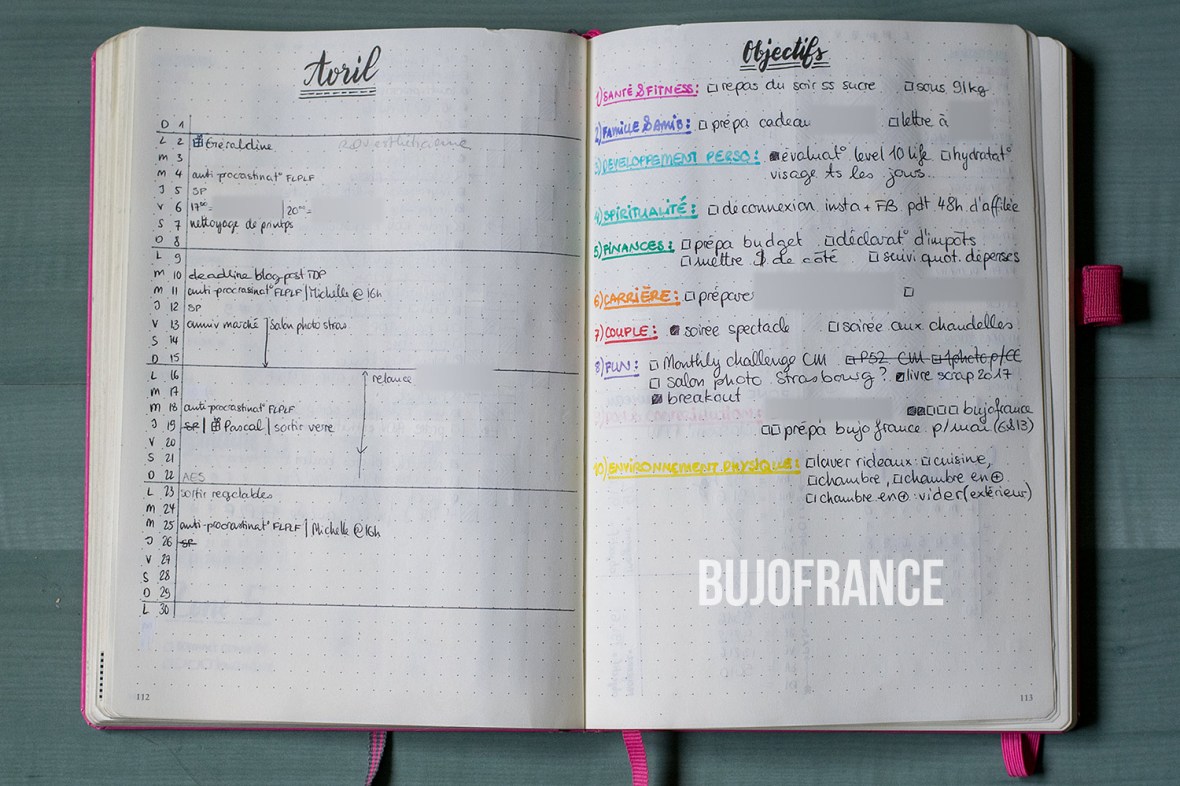 Avril
D 1
L 2 Géraldine
M 3
M 4 anti procrastinat° FLPLF
J 5 SP
V 6 17⁰⁰= | 20⁰⁰=
S 7 nettoyage de printps
D 8
L 9
M 10 deadline blog post TDP
M 11 anti-procrasinat° FLPLF | Michelle @ 16h
J 12 SP
V 13 anniv marché | salon photo stras
S 14
D 15
L 16 relance
M 17
M 18 anti-procrastinat° FLPLF
J 19 SP | Pascal | sortir verre
V 20
S 21
D 22 AES
L 23 sortir recyclables
M 24
M 25 anti-procrastinat° FLPLF | Michelle @ 16h
J 26 SP
V 27
S 28
D 29
L 30
112
Objectifs
1) SANTÉ & FITNESS: □ repas du soir ss sucre □ sous 91kg
2) FAMILLE & AMIS: □ prépa cadeau □ lettre à
3) DEVELOPPEMENT PERSO: ■ évaluat° level 10 life □ hydratat°
visage ts les jours.
4) SPIRITUALITÉ: □ déconnexion insta + FB pdt 48h d'affilée
5) FINANCES: □ prépa budget □ déclarat° d'impôts
□ mettre $ de côté □ suivi quot. dépenses
6) CARRIÈRE: □ préparer □
7) COUPLE: ■ soirée spectacle □ soirée aux chandelles
8) FUN: □ Monthly challenge CM □ P52 CM □ 1photo p/CE
□ salon photo Strasbourg? ■ livre scrap 2017
■ breakout
■■□□□ bujofrance
□□ prépa bujofrance p/mai (6&13)
10) ENVIRONNEMENT PHYSIQUE: □ laver rideaux: □ cuisine,
□ chambre, □ chambre en ⊕.
□ chambre en ⊕: vider (extérieur)
BUJOFRANCE
113